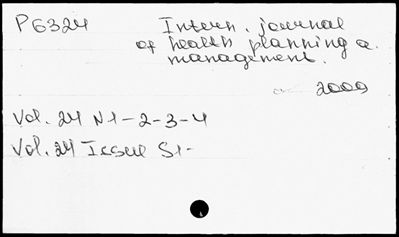 P6324
Intern. journal
of health planning a.
management.
2009
Vol. 24 N1-2-3-4
Vol. 24 Issue S1-